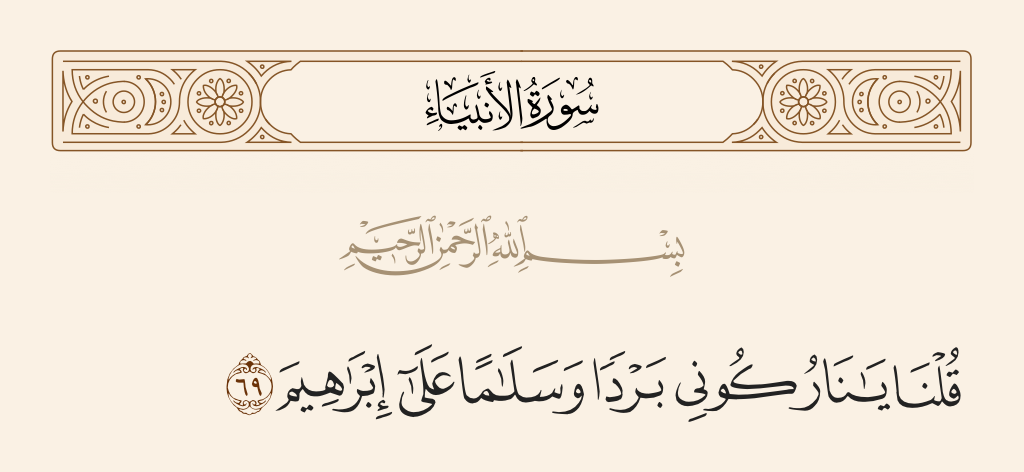 سُورَةُ الأَنبِيَاءِ
بِسْمِ ٱللَّهِ ٱلرَّحْمَٰنِ ٱلرَّحِيمِ
قُلْنَا يَـٰنَارُ كُونِى بَرْدًا وَسَلَـٰمًا عَلَىٰٓ إِبْرَٰهِيمَ ٦٩